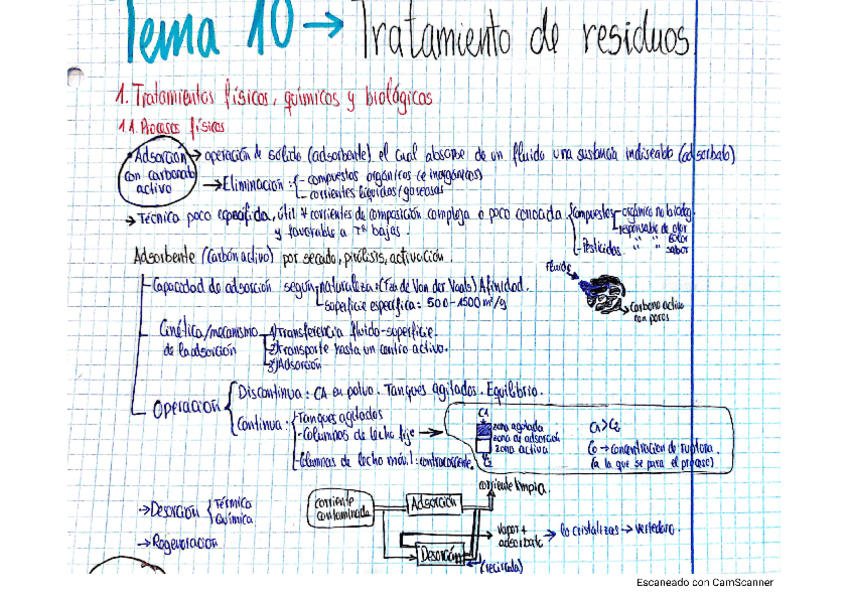 Tema 10 → Tratamiento de residuos
1. Tratamientos físicos, químicos y biológicos
1.1. Procesos físicos
Adsorción con carbono activo → operación de solido (adsorbente) el cual absorbe de un fluido una sustancia indiseable (adsorbato)
→ Eliminación: - compuestos orgánicos (e inorgánicos)
- corrientes líquidas/gaseosas
→ Técnica poco específica, útil corrientes de composición compleja o poco conocida
y favorable a Tª bajas.
compuestos - orgánicos no biodeg.
responsable de olor
" " color
- Pesticidas. " " sabor
Adsorbente (carbón activo) por secado, pirólisis, activación.
- Capacidad de adsorción según - naturaleza: (Fas de Van der Vaals) Afinidad.
superficie específica: 500-1500 m²/g
fluido
Carbono activo
con poros
- Cinética/mecanismo de la adsorción
1) Transferencia fluido-superficie.
2) Transporte hasta un centro activo.
3) Adsorción
Operación
Discontinua: CA en polvo. Tanques agitados. Equilibrio.
Continua: - Tanques agitados
- Columnas de lecho fijo →
- Columnas de lecho móvil: contracorriente.
C1
zona agotada
zona de adsorción
zona activa
C2
C1 > C2
Co → concentración de ruptura.
(a la que se para el proceso)
→ Desorción Térmica
Química
→ Regeneración
corriente contaminada
Adsorción
corriente limpia.
Desorción
vapor + adsorbato → lo cristalizas → vertedero.
(recirculo)
Escaneado con CamScanner